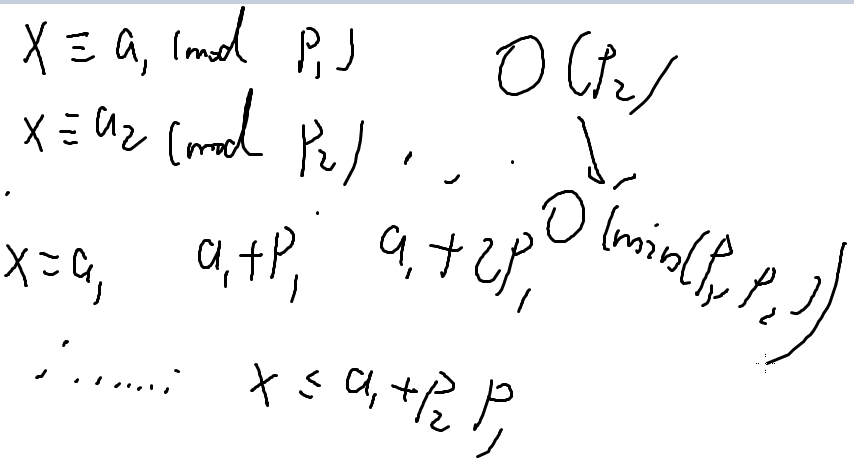 x ≡ a₁ (mod p₁)
O(p₂)
x ≡ a₂ (mod p₂)
O(min(p₁, p₂))
x = a₁ a₁+p₁ a₁+2p₁
x ≤ a₁+p₂p₁